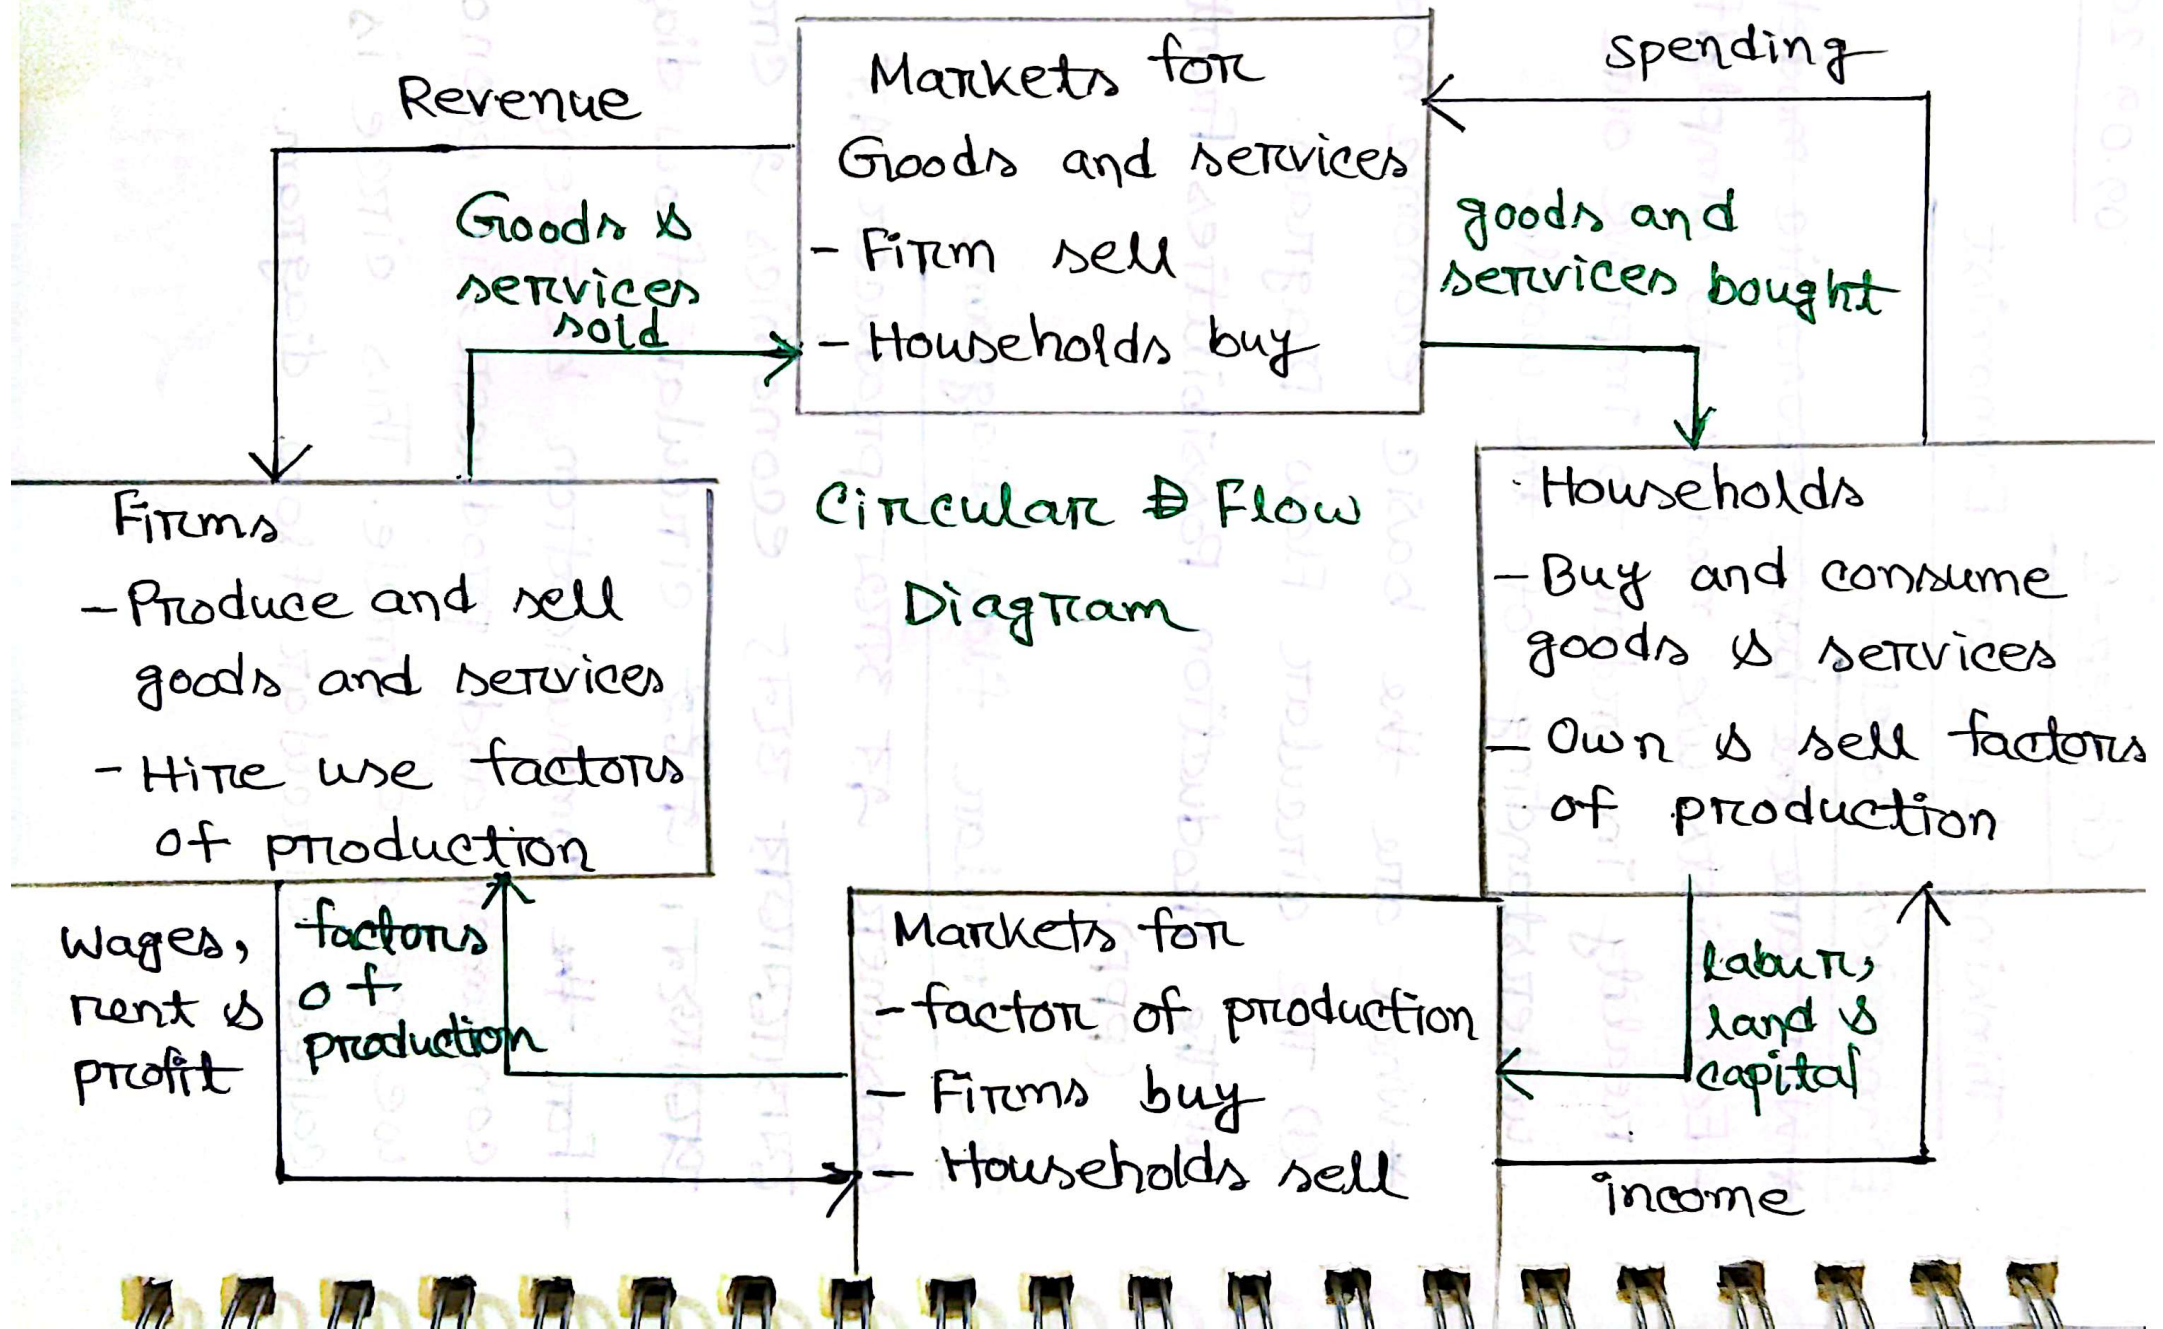 Revenue
Markets for
Goods and services
- Firm sell
- Households buy
spending
Goods &
services
sold
goods and
services bought
Firms
- Produce and sell
goods and services
- Hire use factors
of production
Circular Flow
Diagram
Households
- Buy and consume
goods & services
- Own & sell factors
of production
wages,
rent &
profit
factors
of
production
Markets for
- factor of production
- Firms buy
- Households sell
labur,
land &
capital
income